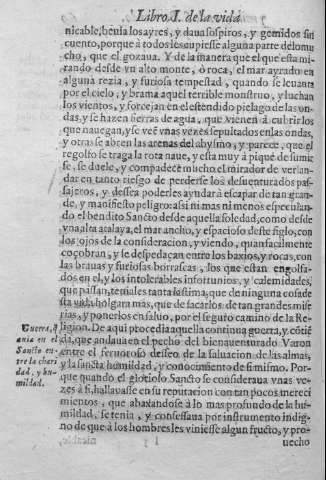 Libro. I. de la vida
nicable, henia los ayres, y daua sospiros, y gemidos sin
cuento, porque à todos les cupiesse alguna parte de lo mu
cho, que el gozaua. Y de la manera que el que esta mi-
rando desde vn alto monte, ò roca, el mar ayrado en
alguna rezia, y furiosa tempestad, quando se leuanta
por el cielo, y brama aquel terrible monstruo, y luchan
los vientos, y forcejan en el estendido pielago de las on-
das, y se hazen sierras de agua, que vienen à cubrir los
que nauegan, y se veê vnas vezes sepultados en las ondas,
y otras se abren las arenas del abysmo, y parece, que el
regolfo se traga la rota naue, y esta muy à pique de sumir
se, se duele, y compadece mucho el mirador de verlan-
dar en tanto riesgo de perderse los desuenturados pas-
sajeros, y dessea poderles ayudar à escapar de tan gran-
de, y manifiesto peligro: assi ni mas ni menos especulan-
do el bendito Sancto desde aquella soledad, como desde
vna alta atalaya, el mar ancho, y espacioso deste siglo, con
los ojos de la consideracion, y viendo, quan facilmente
çoçobran, y se despedaçan entre los baxios, y rocas, con
las brauas y furiosas borrascas, los que estan engolfa-
dos en el, y los intolerables infortunios, y calemidades,
que passan, teniales tanta lastima, que de ninguna cosa de
sta vida holgara màs, que de sacarlos de tan grandes mise
rias, y ponerlos en saluo, por el seguro camino de la Re-
ligion. De aqui procedia aquella continua guerra, y côtiê
da, que andaua en el pecho del bienauenturado Varon
entre el feruoroso desseo de la saluacion de las almas,
y la sancta humildad, y conocimiento de si mismo. Por-
que quando el glorioso Sancto se consideraua vnas ve-
zes à si, hallauasse en su reputacion con tan pocos mereci
mientos, que abaxandose à lo mas profundo de la hu-
mildad, se tenia, y confessaua por instrumento indig-
no de que à los hombres les viniesse algun fructo, y pro-
uecho
Guerra, q̃
auia en el
Sancto en-
tre la chari
dad, y hu-
mildad.